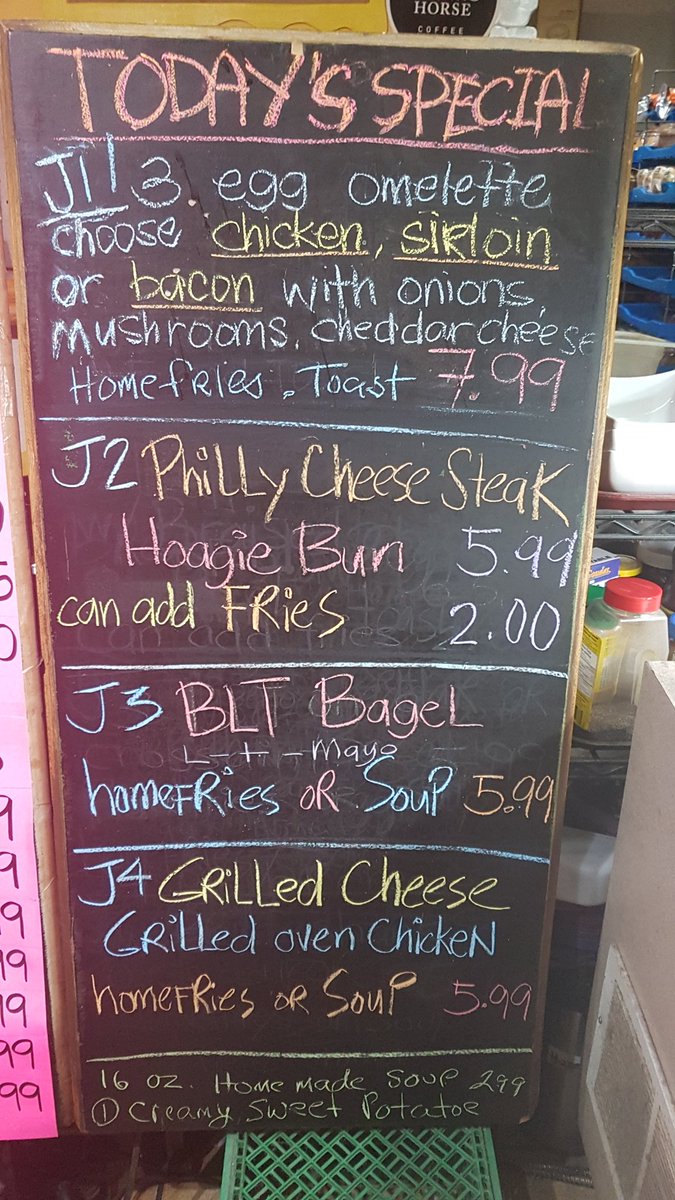 HORSE
COFFEE
TODAY'S SPECIAL
J1! 3 egg omelette
choose chicken, sirloin
or bacon with onions,
mushrooms, cheddar cheese
Homefries. Toast 7.99
J2 Philly Cheese Steak
Hoagie Bun 5.99
can add Fries 2.00
J3 BLT Bagel
L-t-Mayo
homefries or Soup 5.99
J4 Grilled Cheese
Grilled oven Chicken
homefries or Soup 5.99
16 oz. Home made soup 2.99
① Creamy Sweet Potatoe